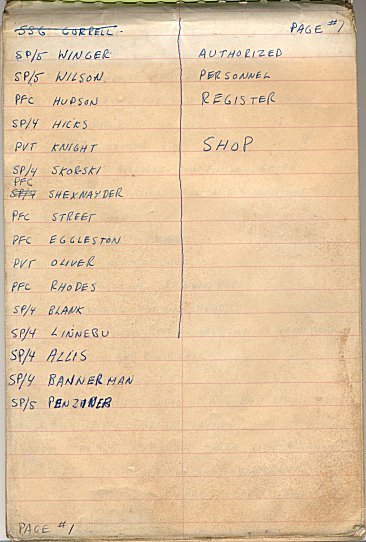 SSG GORRELL. PAGE #1
SP/5 WINGER AUTHORIZED
SP/5 WILSON PERSONNEL
PFC HUDSON REGISTER
SP/4 HICKS
PVT KNIGHT SHOP
SP/4 SKORSKI
PFC
SP/4 SHEXNAYDER
PFC STREET
PFC EGGLESTON
PVT OLIVER
PFC RHODES
SP/4 BLANK
SP/4 LINNEBU
SP/4 ALLIS
SP/4 BANNERMAN
SP/5 PENZINER
PAGE #1